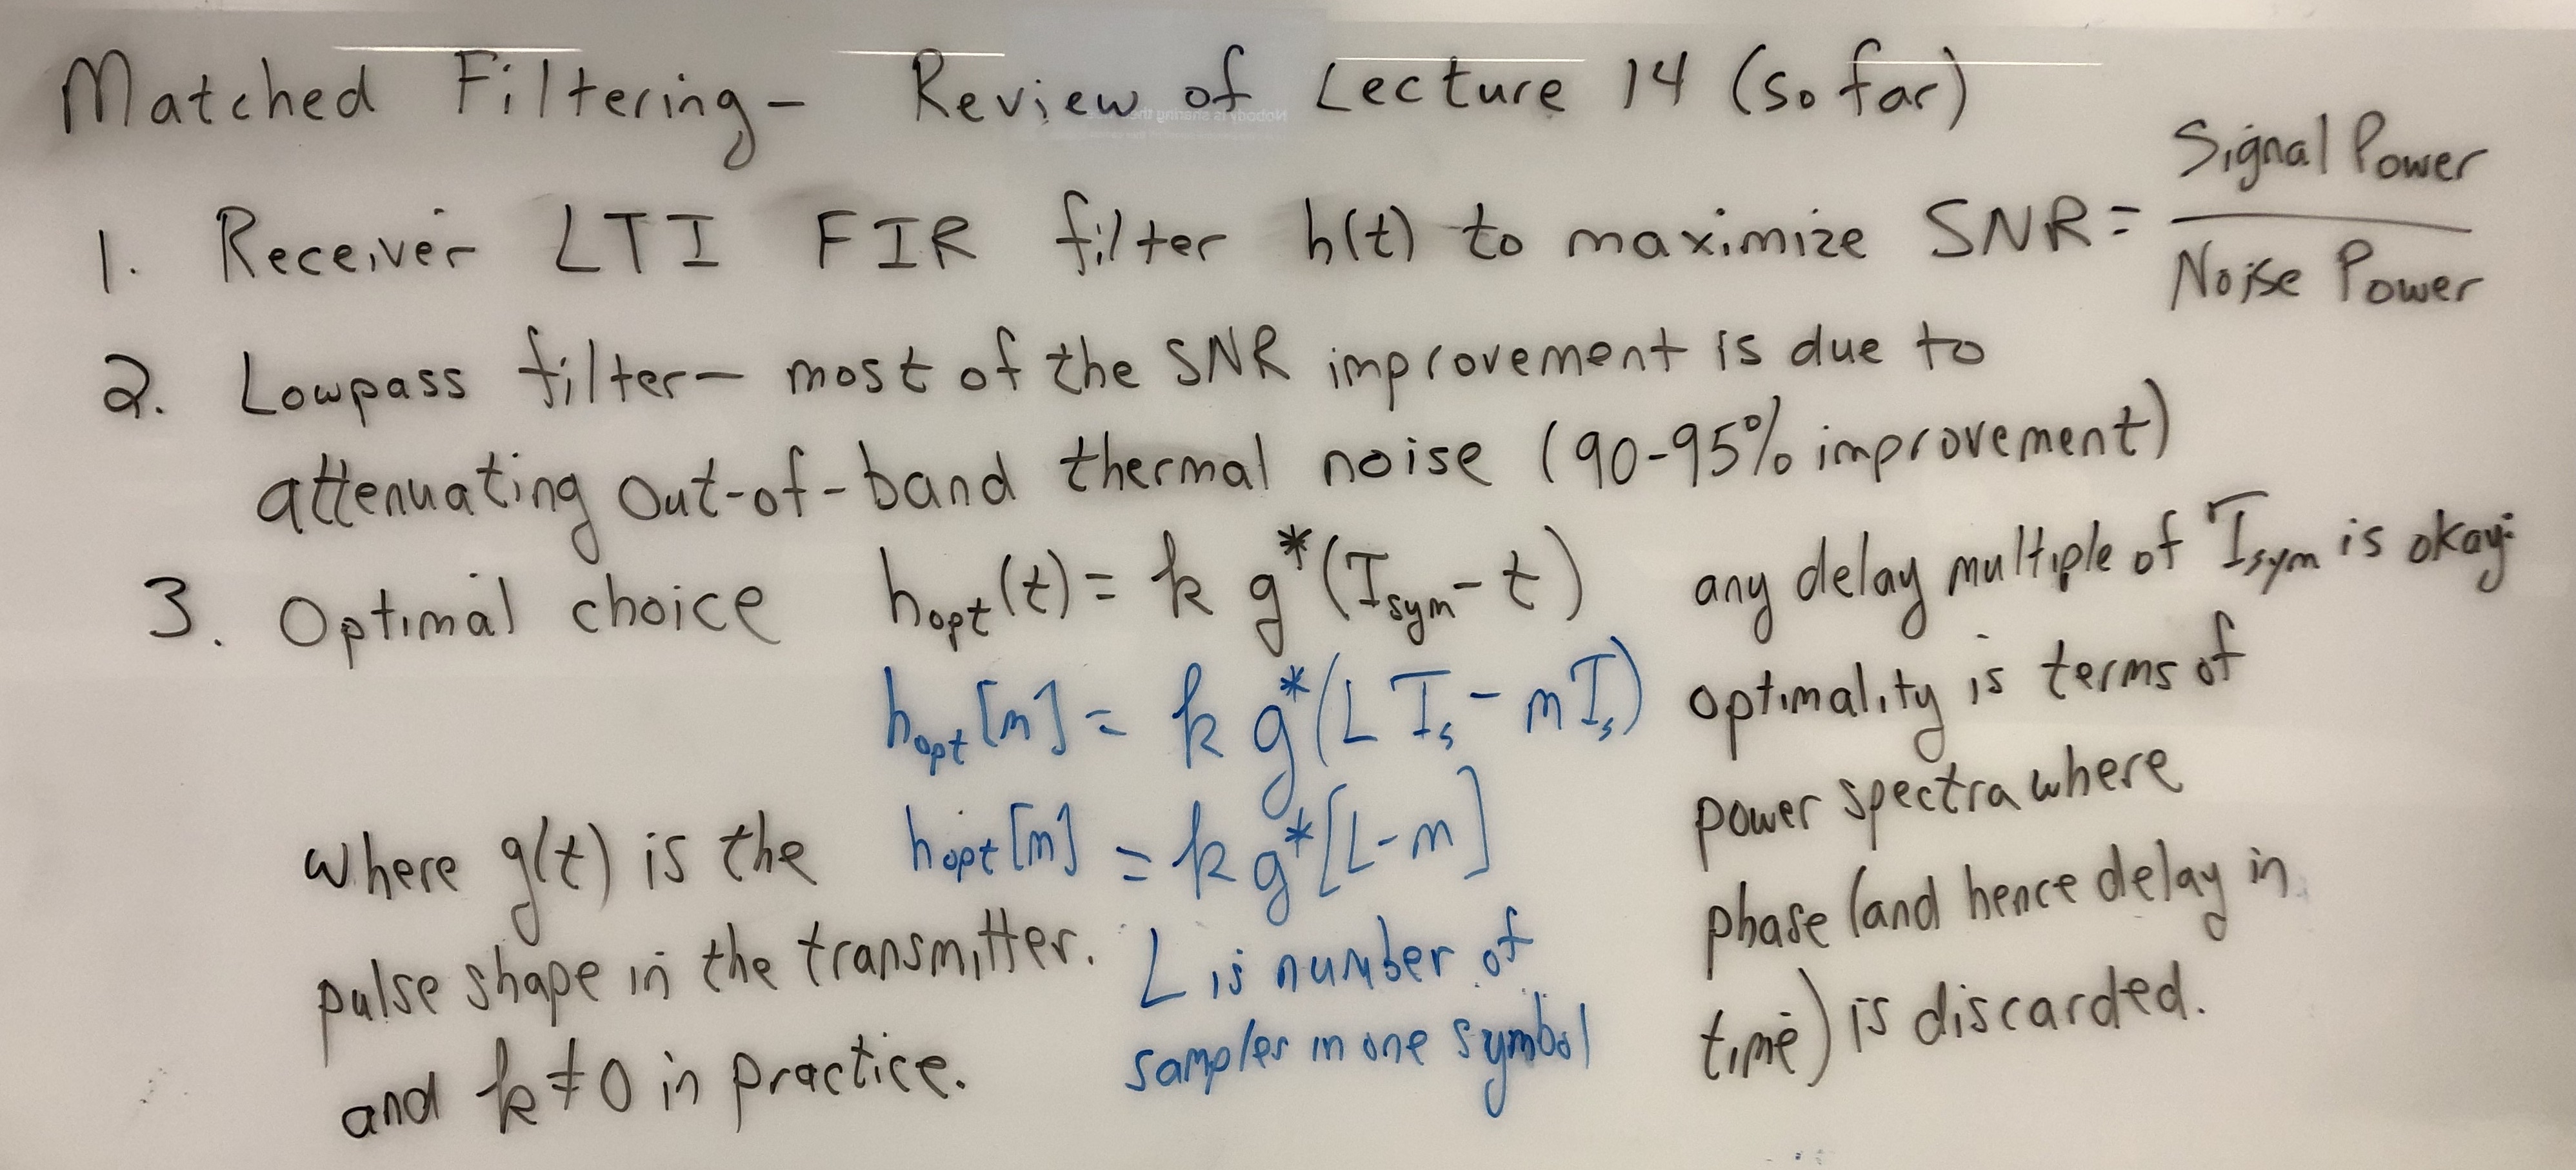 Matched Filtering - Review of Lecture 14 (so far)
1. Receiver LTI FIR filter h(t) to maximize SNR = Signal Power / Noise Power
2. Lowpass filter - most of the SNR improvement is due to
attenuating out-of-band thermal noise (90-95% improvement)
3. Optimal choice h_opt(t) = k g*(T_sym - t)
h_opt[m] = k g*(L T_s - m T_s)
h_opt[m] = k g*[L-m]
where g(t) is the
pulse shape in the transmitter.
and k ≠ 0 in practice.
L is number of
samples in one symbol
any delay multiple of T_sym is okay:
optimality is terms of
power spectra where
phase (and hence delay in
time) is discarded.